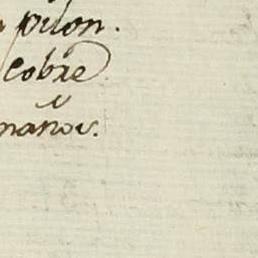 pilon.
Cobre
manos.